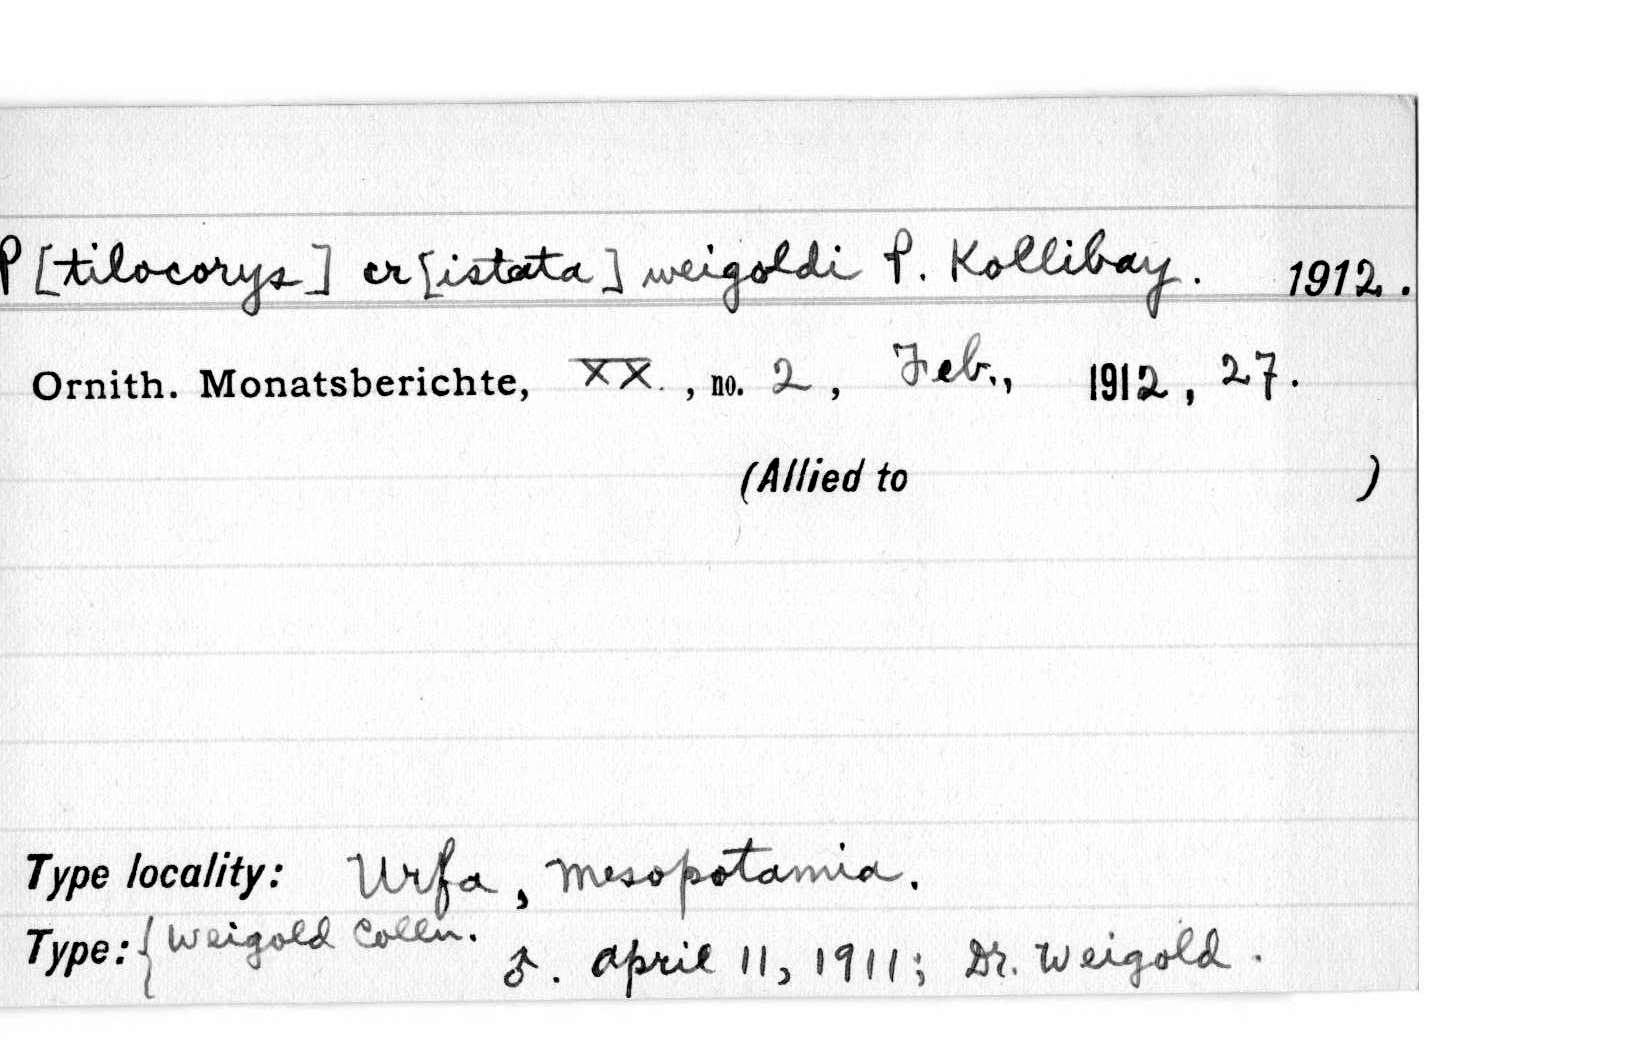 P[tilocorys] cr[istata] weigoldi P. Kollibay. 1912.
Ornith. Monatsberichte, XX., no. 2, Feb., 1912, 27.
(Allied to )
Type locality: Urfa, Mesopotamia.
Type: { Weigold Colln. ♂. April 11, 1911; Dr. Weigold.